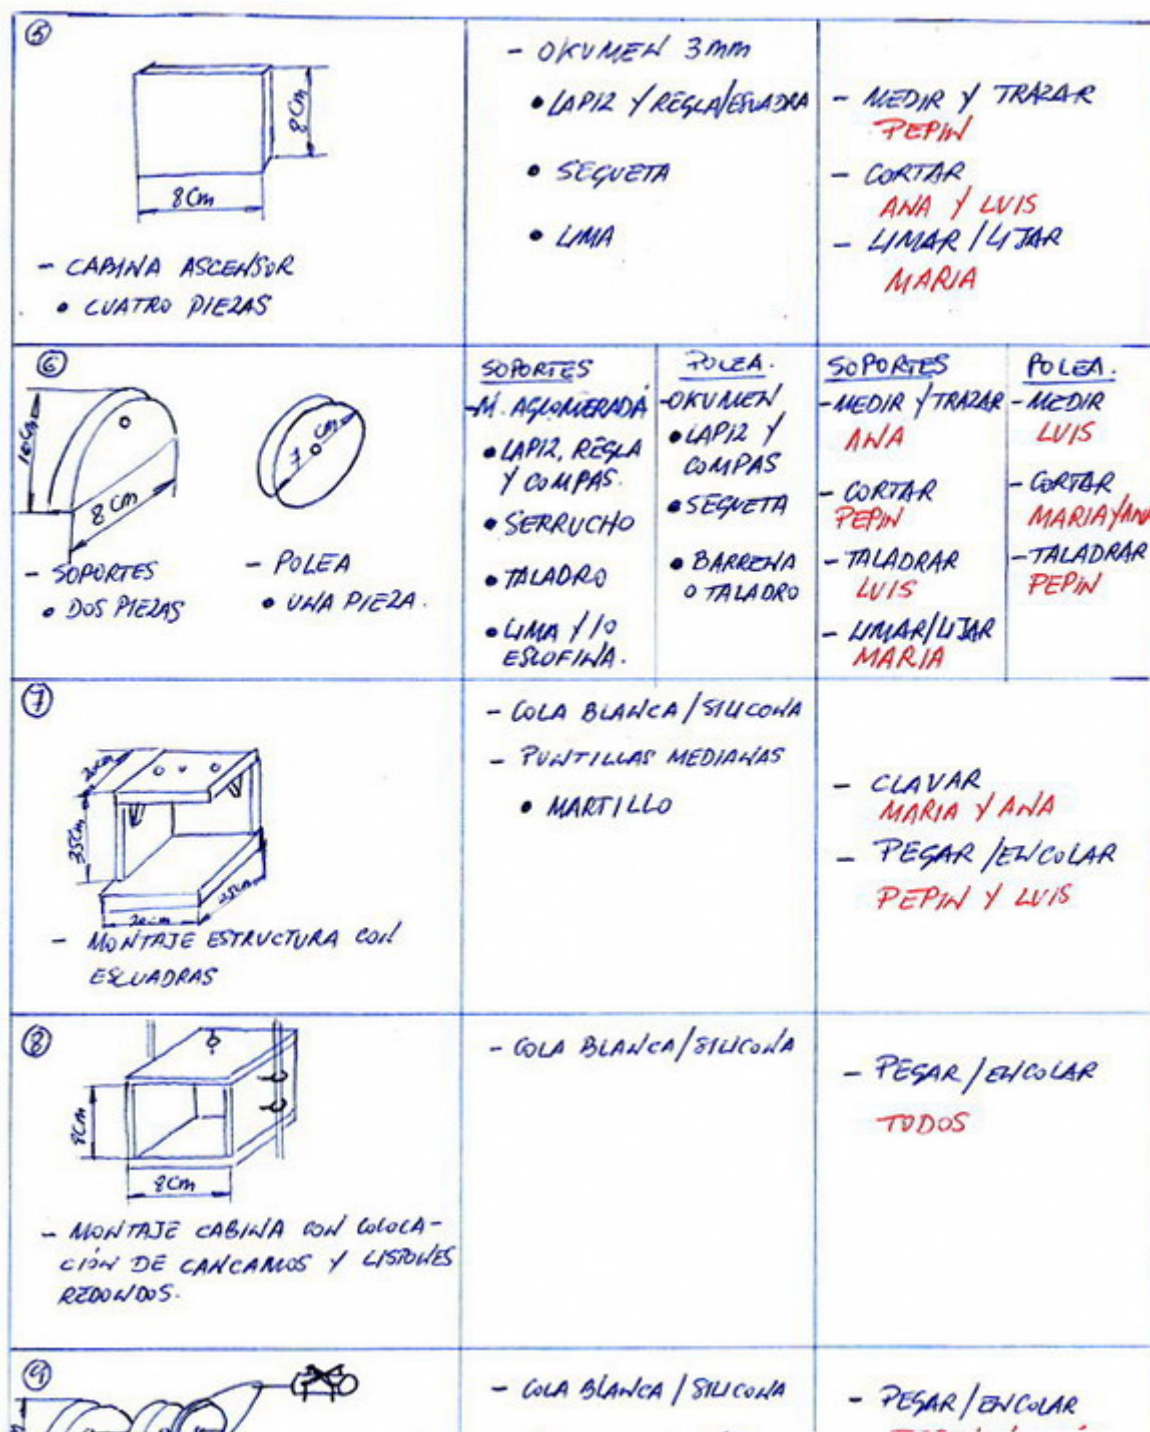 5
8 Cm
8 Cm
- CABINA ASCENSOR
• CUATRO PIEZAS
- OKUMEN 3mm
• LAPIZ Y REGLA/ESCUADRA
• SEGUETA
• LIMA
- MEDIR Y TRAZAR
PEPIN
- CORTAR
ANA Y LUIS
- LIMAR/LIJAR
MARIA
6
8 Cm
7 cm
- SOPORTES
• DOS PIEZAS
- POLEA
• UNA PIEZA.
SOPORTES
- M. AGLOMERADA
• LAPIZ, REGLA
Y COMPAS.
• SERRUCHO
• TALADRO
• LIMA Y/O
ESCOFINA.
POLEA.
- OKUMEN
• LAPIZ Y
COMPAS
• SEGUETA
• BARRENA
O TALADRO
SOPORTES
- MEDIR Y TRAZAR
ANA
- CORTAR
PEPIN
- TALADRAR
LUIS
- LIMAR/LIJAR
MARIA
POLEA.
- MEDIR
LUIS
- CORTAR
MARIA Y ANA
- TALADRAR
PEPIN
7
20cm
35Cm
20cm
25cm
- MONTAJE ESTRUCTURA CON
ESCUADRAS
- COLA BLANCA/SILICONA
- PUNTILLAS MEDIANAS
• MARTILLO
- CLAVAR
MARIA Y ANA
- PEGAR/ENCOLAR
PEPIN Y LUIS
8
8Cm
8Cm
- MONTAJE CABINA CON COLOCA-
CIÓN DE CANCAMOS Y LISTONES
REDONDOS.
- COLA BLANCA/SILICONA
- PEGAR/ENCOLAR
TODOS
9
- COLA BLANCA/SILICONA
- PEGAR/ENCOLAR